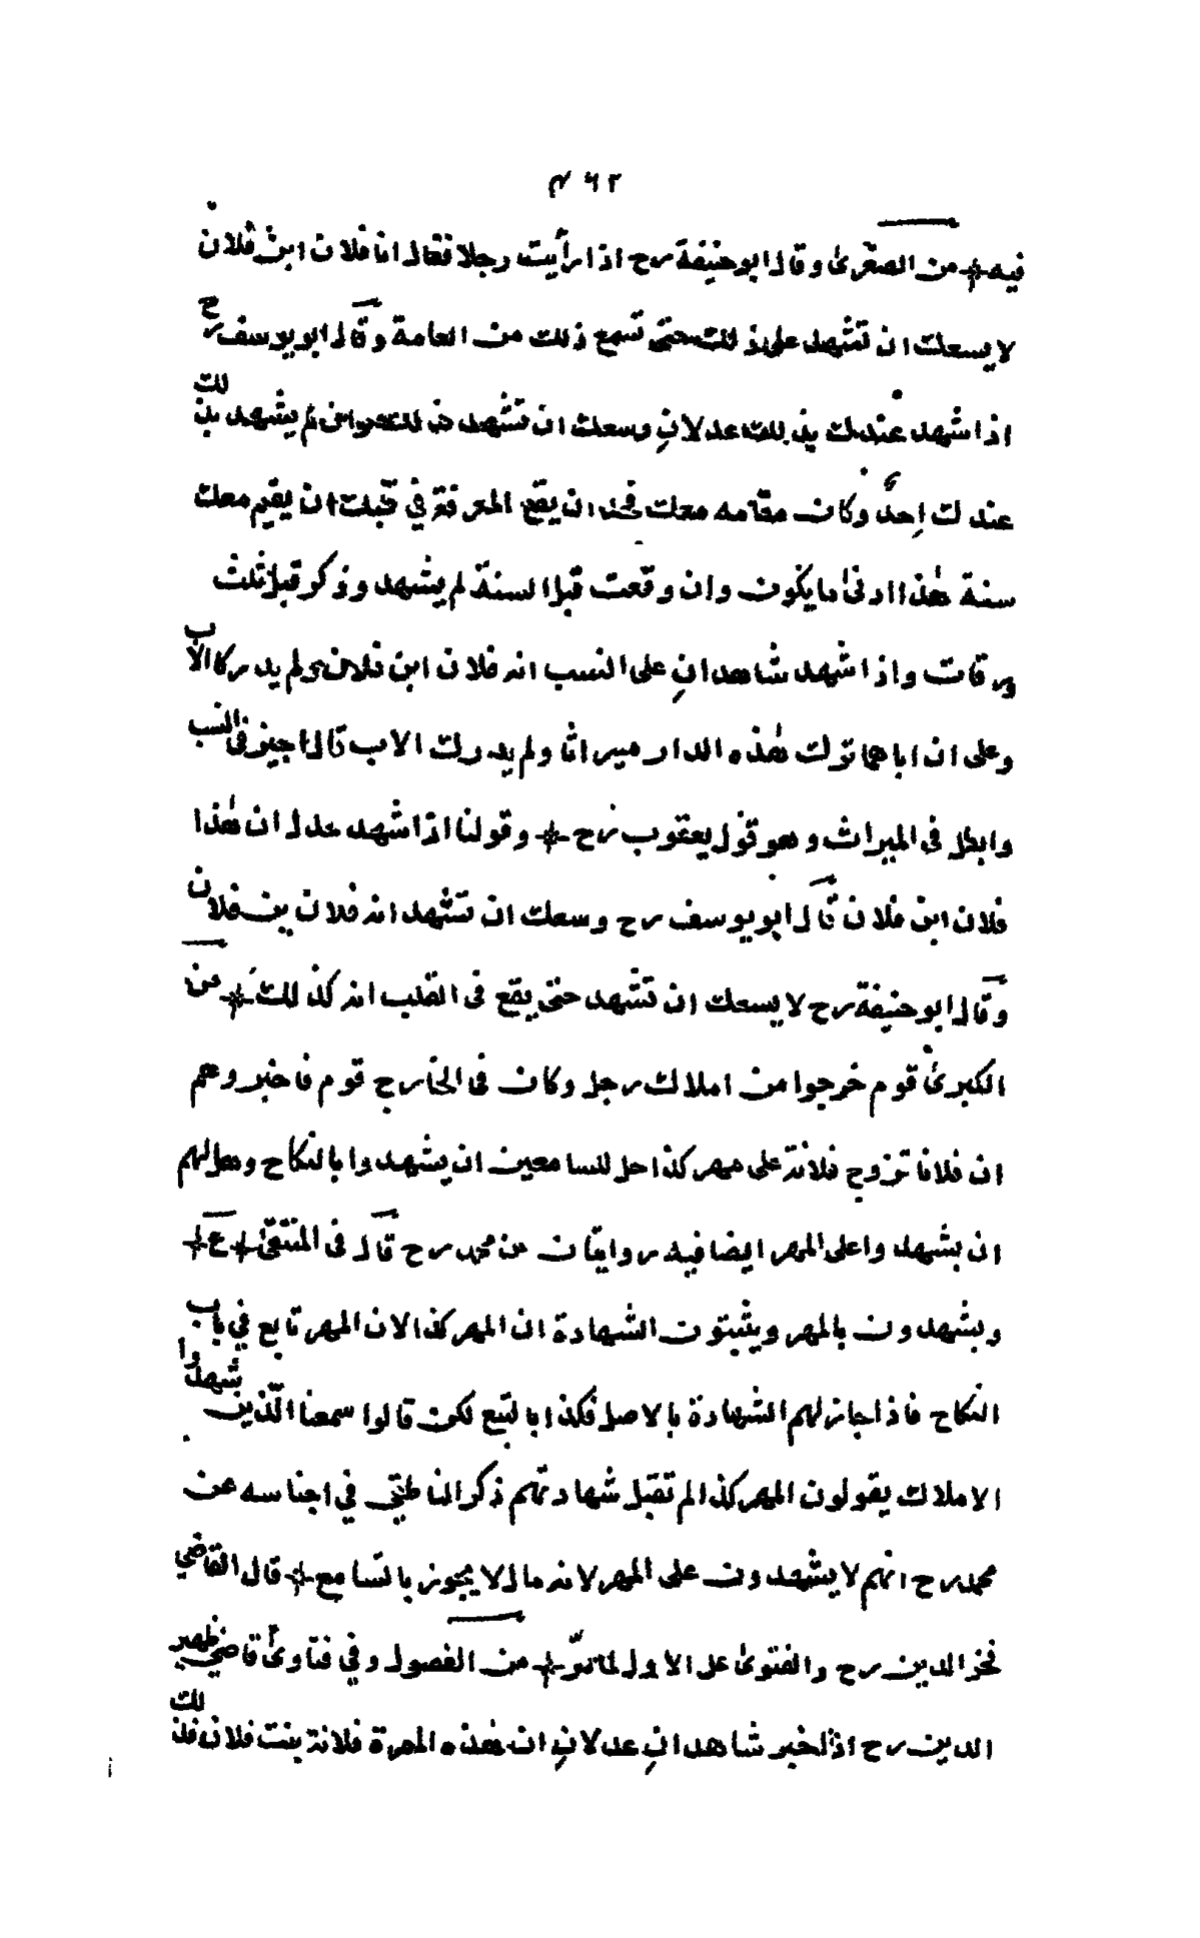 ٤٦٢
فيه * من الصغرىٰ وقال ابو حنيفة رح اذا رأيت رجلا فقال انا فلان ابن فلان
لا يسعك ان تشهد على ذلك حتىٰ تسمع ذلك من العامة وقال ابو يوسف رح
اذا شهد عندك بذلك عدلانِ وسعك ان تشهد بذلك وان لم يشهد بذلك
عندك احدٌ وكان مقامه معك فحد ان يقع المعرفة في قلبك ان يقيم معك
سنة هٰذا ادنىٰ ما يكون وان وقعت قبل السنة لم يشهد وذكر قبل ثلث
ورقات واذا شهد شاهدانِ على النسب انه فلان ابن فلان ولم يدركا الاب
وعلى ان اباهما ترك هٰذه الدار ميراثا ولم يدرك الاب قال اجيز في النسب
وابطل في الميراث وهو قول يعقوب رح * وقولنا اذا شهد عدل ان هٰذا
فلان ابن فلان قال ابو يوسف رح وسعك ان تشهد انه فلان بن فلان
وقال ابو حنيفة رح لا يسعك ان تشهد حتى يقع في القلب انه كذلك * من
الكبرىٰ قوم خرجوا من املاك رجل وكان في الخارج قوم فاخبروهم
ان فلانا تزوج فلانة على مهر كذا حل للسامعين ان يشهدوا بالنكاح وهل لهم
ان يشهدوا على المهر ايضا فيه روايتان عن محمد رح قال في المنتقىٰ * ع *
ويشهدون بالمهر ويثبتون الشهادة ان المهر كذا لان المهر تابع في باب
النكاح فاذا جاز لهم الشهادة بالاصل فكذا بالتبع لكن قالوا سمعنا الّذين شهدوا
الاملاك يقولون المهر كذا لم تقبل شهادتهم ذكر الناطفي في اجناسه عن
محمد رح انهم لا يشهدون على المهر لانه مال لا يجوز بالتسامع * قال القاضي
فخر الدين رح والفتوىٰ على الاول لما مرّ * من الفصول وفي فتاوىٰ قاضي ظهير
الدين رح اذا اخبر شاهدانِ عدلانِ ان هٰذه المرة فلانة بنت فلان فذلك